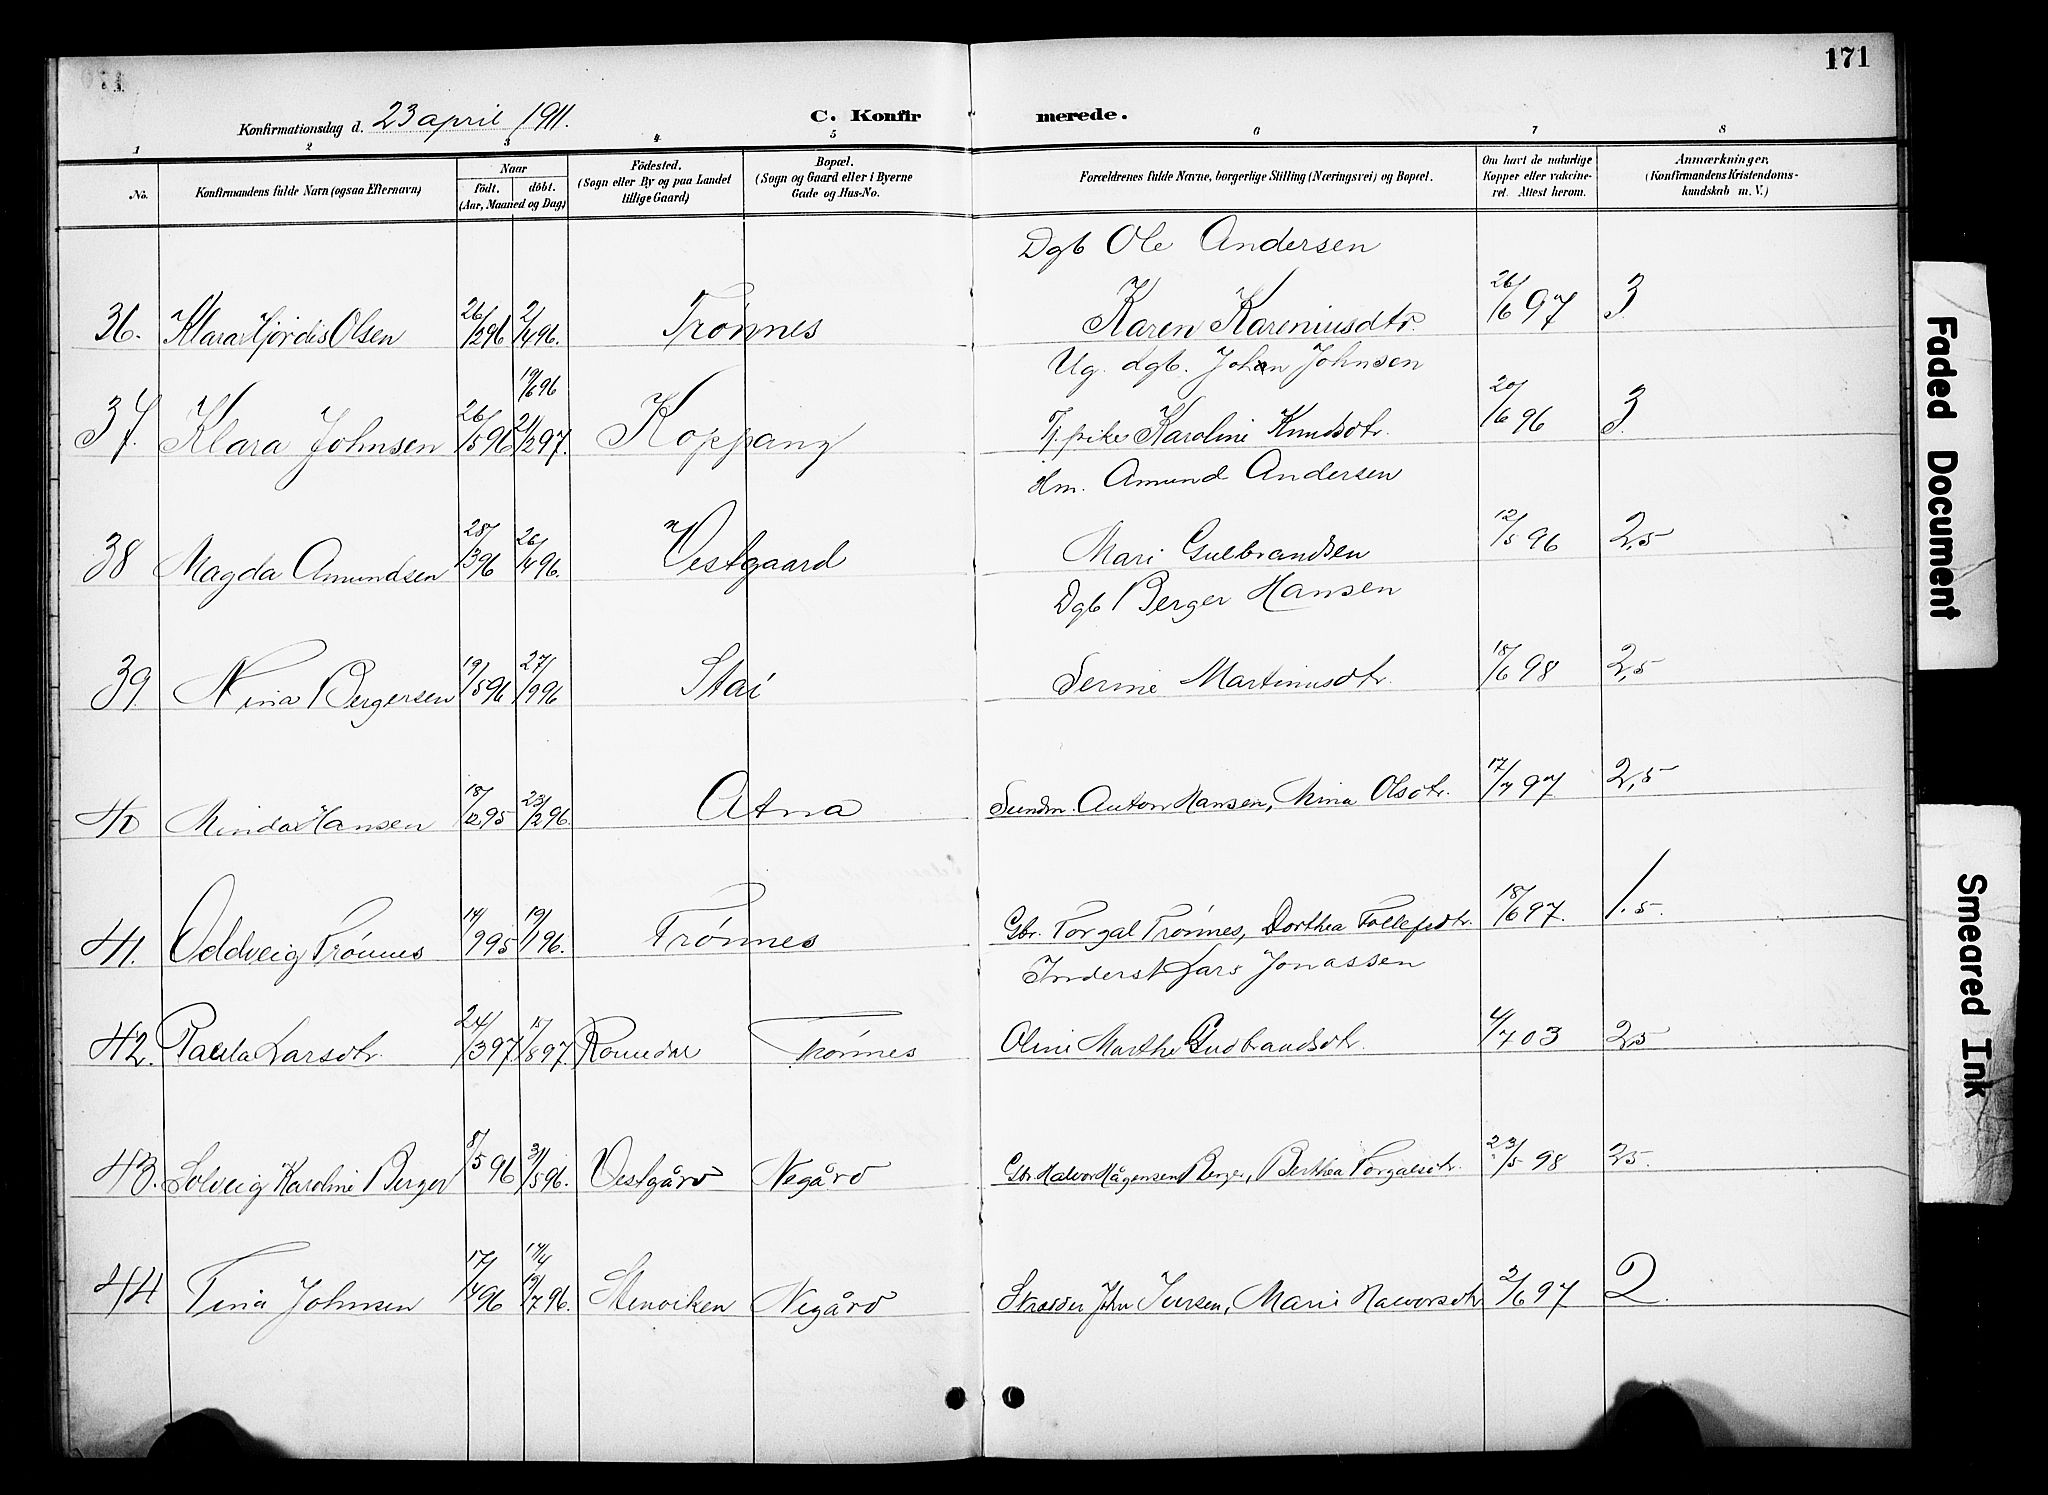 171
Konfirmationsdag d. 23 april 1911.
C. Konfirmerede.
1 2 3 4 5 6 7 8
No.
Konfirmandens fulde Navn (ogsaa Efternavn)
Naar
födt. döbt.
(Aar, Maaned og Dag)
Födested.
(Sogn eller By og paa Landet
tillige Gaard)
Bopæl.
(Sogn og Gaard eller i Byerne
Gade og Hus-No.
Forældrenes fulde Navne, borgerlige Stilling (Næringsvei) og Bopæl.
Om havt de naturlige
Kopper eller vakcine-
ret. Attest herom.
Anmærkninger,
(Konfirmandens Kristendoms-
kundskab m. V.)
Dgb Ole Andersen
36. Klara Hjørdis Olsen 26/2 96 2/4 96. Trønnes Karen Kareniusdtr 26/6 97 3
Ug. dgb. Johan Johnsen
19/6 96
37. Klara Johnsen 26/5 96 21/2 97. Koppang Karoline Knudsdtr. 20/6 96 3.
Hm. Amund Andersen
38 Magda Amundsen 28/3 96 26/4 96. Vestgaard Mari Gulbrandsen 12/5 96 2,5
Dgb Berger Hansen
39. Nina Bergersen 19/5 96 27/9 96 Stai Serine Martinusdtr. 18/6 98 2,5
40 Minda Hansen 18/12 95 23/2 96. Atna Anton Hansen, Mina Olsdtr. 17/7 97 2,5
41. Oddveig Trønnes 14/9 95 19/1 96. Trønnes Gbr. Torgal Trønnes, Dorthea Tollefsdtr. 18/6 97. 1.5.
Inderst Lars Jonassen
42. Paula Larsdtr. 24/3 97 15/8 97. Romedal Trønnes Oline Marthe Gudbrandsdtr. 4/7 03 25
43. Solveig Karoline Berger 8/5 96 31/5 96. Vestgård Negård Gbr Halvor Hågensen Berger, Berthea Torgalsdtr. 23/5 98 25.
14/4
44 Tina Johnsen 17/4 96 19/7 96. Stenviken Negård Skrædder John Iversen, Marie Halvorsdtr 2/6 97 2.
Faded Document
Smeared Ink